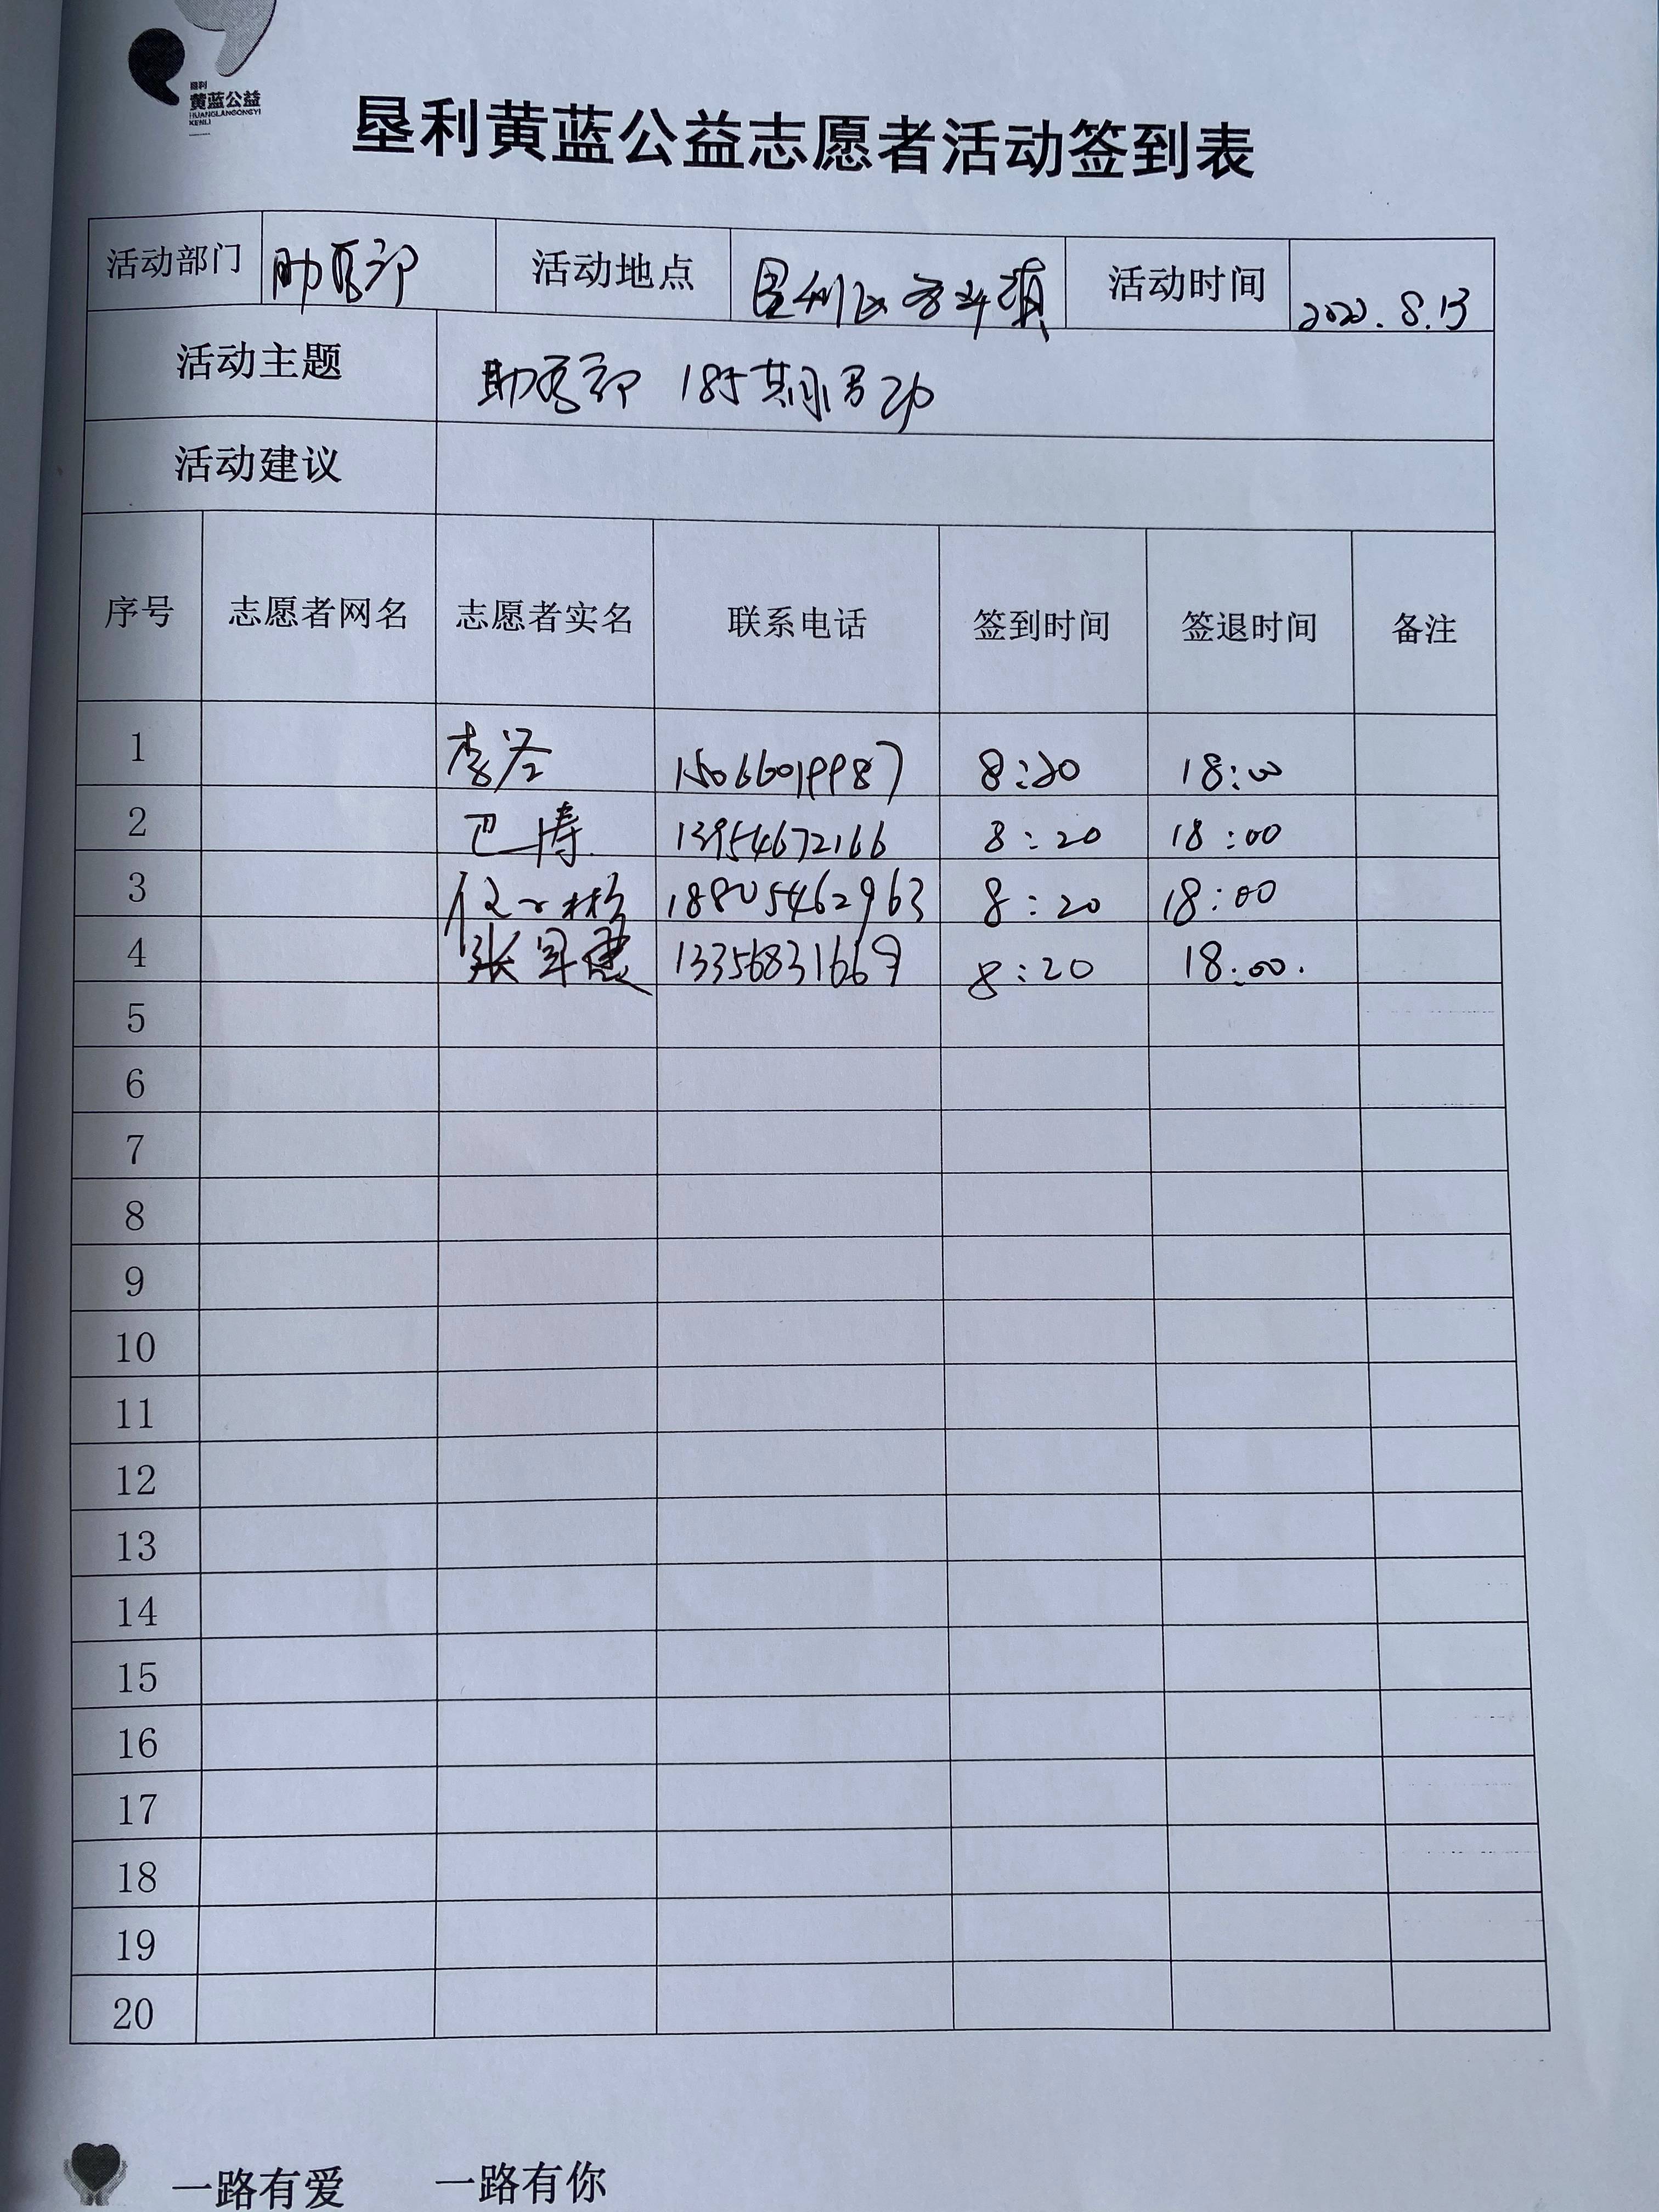 垦利
黄蓝公益
HUANGLANGONGYI
KENLI
垦利黄蓝公益志愿者活动签到表
活动部门 助医部 活动地点 垦利区 镇 活动时间 2022.8.13
活动主题 助医部 185期
活动建议
序号 志愿者网名 志愿者实名 联系电话 签到时间 签退时间 备注
1 李 15066019987 8:20 18:00
2 巴涛 13954672166 8:20 18:00
3 18805462963 8:20 18:00
4 张 13356831669 8:20 18:00.
5
6
7
8
9
10
11
12
13
14
15
16
17
18
19
20
一路有爱 一路有你